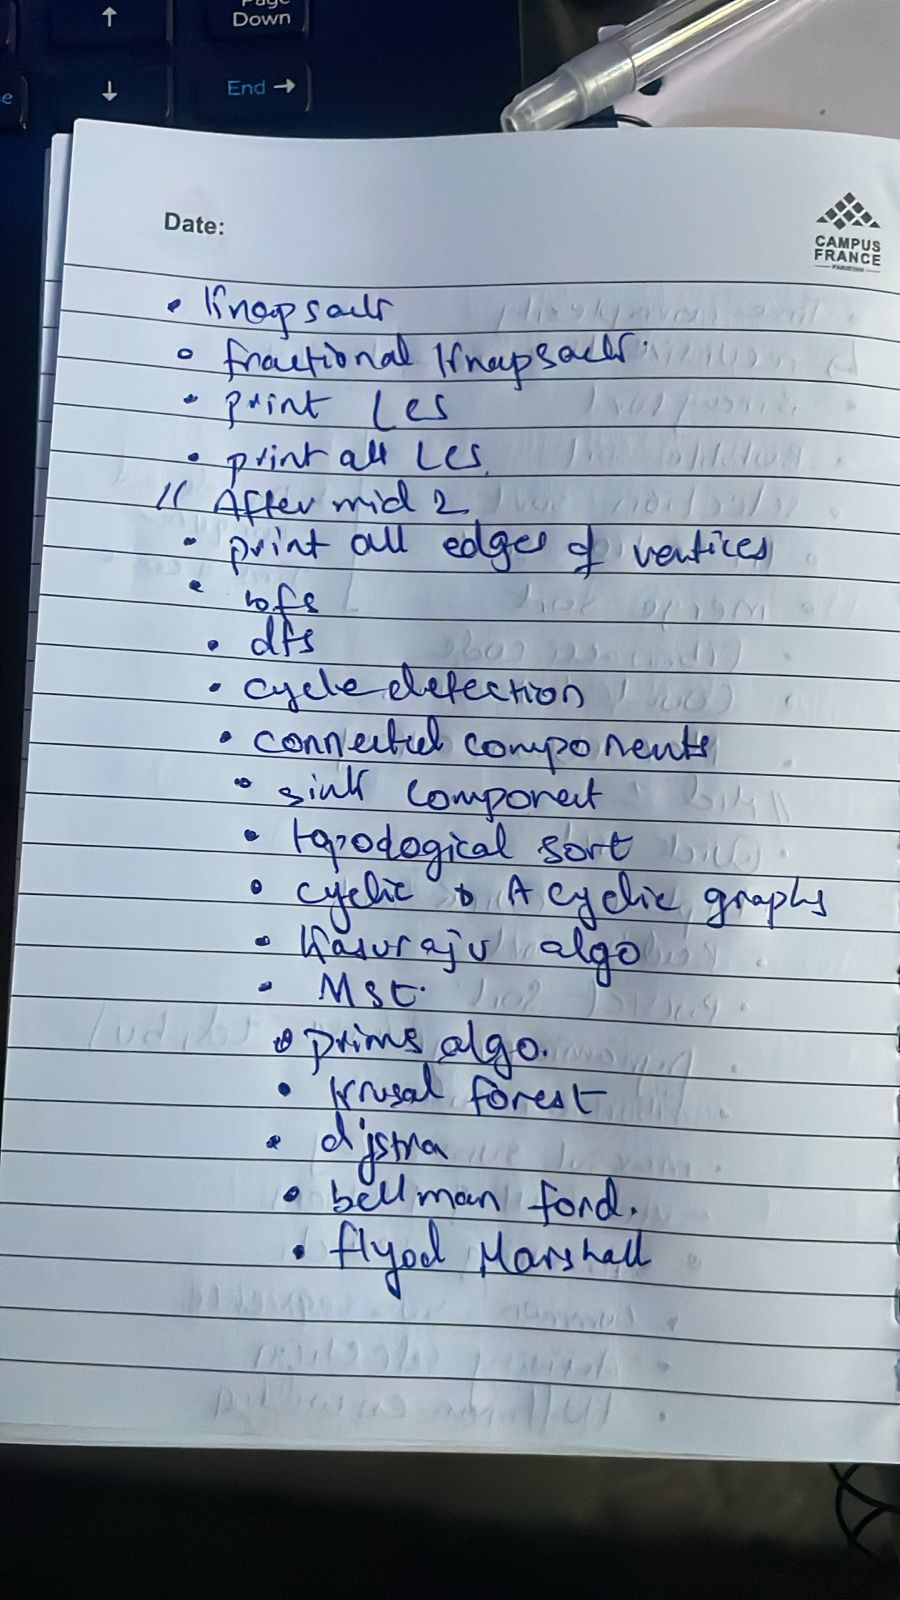 Page
Down
↑
↓
End →
e
Date:
CAMPUS
FRANCE
PAKISTAN
• Knapsack
• fractional Knapsack.
• print LCS
• print all LCS.
// After mid 2
• print all edges of vertices
• bfs
• dfs
• cycle detection
• connected components
• sink component
• topological sort
• cyclic & Acyclic graphs
• Kasuraju algo
• MSt.
• prims algo.
• Krusal forest
• dijstra
• bellman ford.
• flyod Marshall